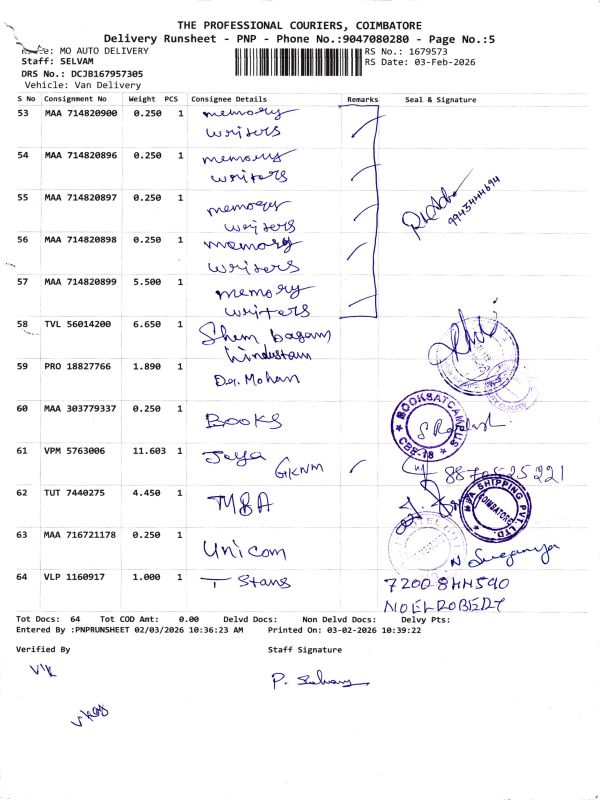 THE PROFESSIONAL COURIERS, COIMBATORE
Delivery Runsheet - PNP - Phone No.:9047080280 - Page No.:5
MO AUTO DELIVERY RS No.: 1679573
Staff: SELVAM RS Date: 03-Feb-2026
DRS No.: DCJB167957305
Vehicle: Van Delivery
S No Consignment No Weight PCS Consignee Details Remarks Seal & Signature
53 MAA 714820900 0.250 1 memory
writers
54 MAA 714820896 0.250 1 memory
writers
55 MAA 714820897 0.250 1 memory
writers
9943444694
56 MAA 714820898 0.250 1 memory
writers
57 MAA 714820899 5.500 1 memory
writers
58 TVL 56014200 6.650 1 Shem bagam
hindustan
59 PRO 18827766 1.890 1 Dr. Mohan
60 MAA 303779337 0.250 1 BOOKS
BOOKSATCAMPUS
CBE-18
61 VPM 5763006 11.603 1 Jaya
GKNM
8870525221
62 TUT 7440275 4.450 1 MBA
SHIPPING PVT. LTD.
COIMBATORE
63 MAA 716721178 0.250 1 Unicom
64 VLP 1160917 1.000 1 T Stans 7200844590
NOEL ROBERT
Tot Docs: 64 Tot COD Amt: 0.00 Delvd Docs: Non Delvd Docs: Delvy Pts:
Entered By :PNPRUNSHEET 02/03/2026 10:36:23 AM Printed On: 03-02-2026 10:39:22
Verified By Staff Signature